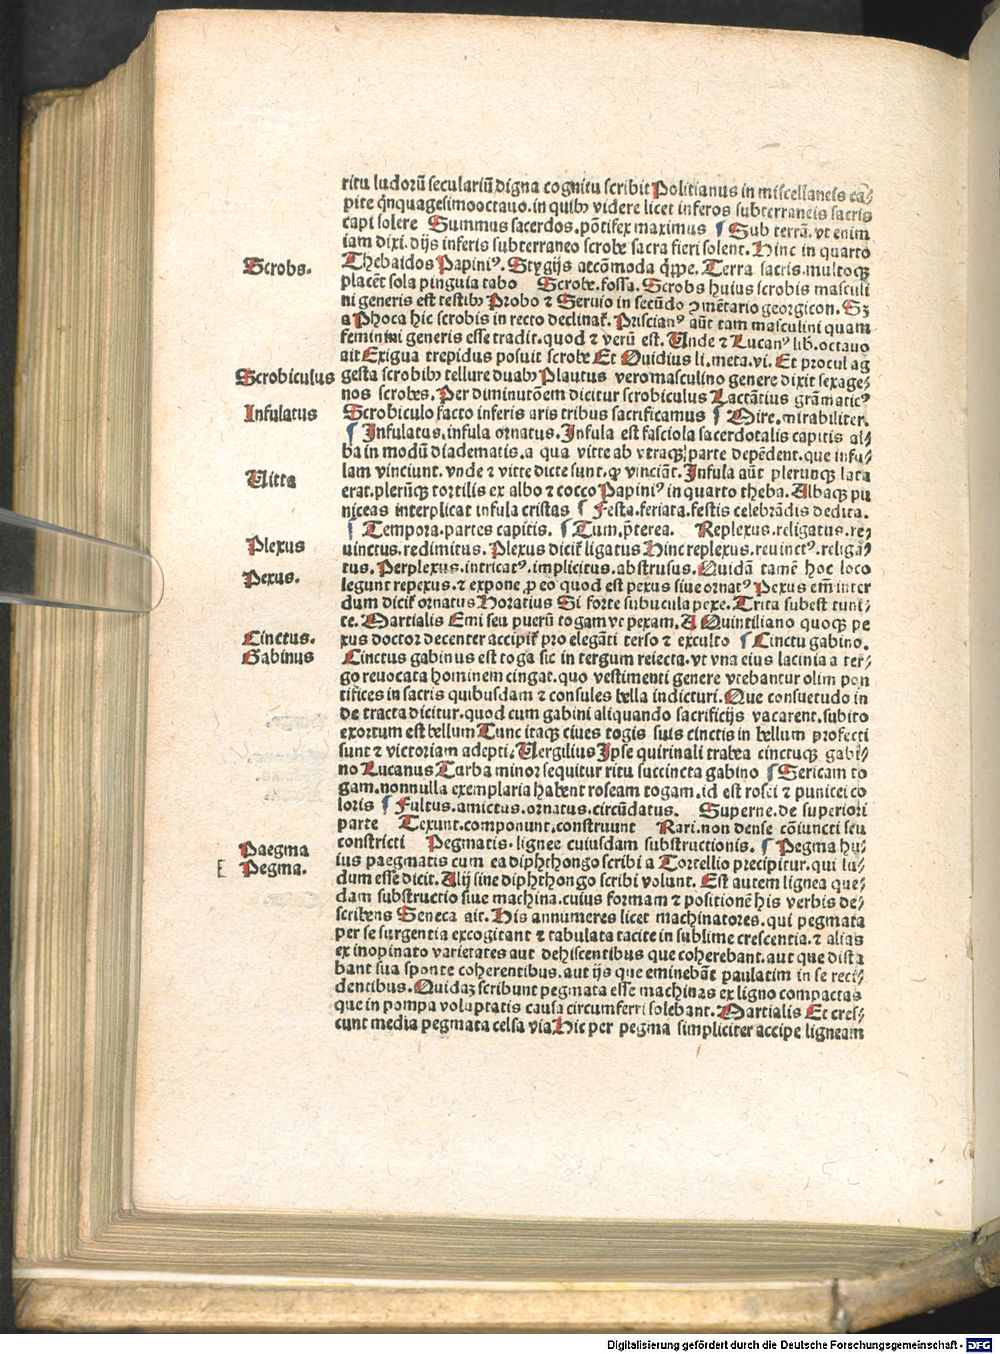 ritu ludorū seculariū digna cognitu scribit Politianus in miscellaneis ca⸗
pite q̄nquagesimooctavo. in quibꝰ videre licet inferos subterraneis sacris
capi solere Summus sacerdos. pōtifex maximus ¶ Sub terrā. vt enim
iam dixi. dijs inferis subterraneo scrobe sacra fieri solent. Hinc in quarto
Scrobs.
Thebaidos Papiniꝰ. Stygijs accōmoda q̄ppe. Terra sacris. multoqꝫ
placēt sola pinguia tabo Scrobe. fossa. Scrobs huius scrobis masculi
ni generis est testibꝰ Probo ⁊ Seruio in secūdo ꝯmētario georgicon. Sꝫ
a Phoca hic scrobis in recto declinat̄. Priscianꝰ aūt tam masculini quam
feminini generis esse tradit. quod ⁊ verū est. Unde ⁊ Lucanꝰ lib. octauo
ait Exigua trepidus posuit scrobe Et Ouidius li. meta. vi. Et procul ag
Scrobiculus
gesta scrobibꝰ tellure duabꝰ Plautus vero masculino genere dixit sexage⸗
nos scrobes. Per diminutōem dicitur scrobiculus Lactātius grāmaticꝰ
Infulatus
Scrobiculo facto inferis aris tribus sacrificamus ¶ Mire. mirabiliter.
¶ Infulatus. infula ornatus. Infula est fasciola sacerdotalis capitis al⸗
ba in modū diadematis. a qua vitte ab vtraqꝫ parte depēdent. que infu⸗
lam vinciunt. vnde ⁊ vitte dicte sunt. ꝙ vinciāt. Infula aūt plerunqꝫ lata
Uitta
erat. plerūqꝫ tortilis ex albo ⁊ cocco Papiniꝰ in quarto theba. Albaqꝫ pu
niceas interplicat infula cristas ¶ Festa. feriata. festis celebrādis dedita.
¶ Tempora. partes capitis. ¶ Tum. p̄terea. Replexus. religatus. re⸗
Plexus
uinctus. redimitus. Plexus dicit̄ ligatus Hinc replexus. reuinctꝰ. religā⸗
tus. Perplexus. intricatꝰ. implicitus. abstrusus. Quidā tamē hoc loco
Pexus.
legunt repexus. ⁊ expone. ꝓ eo quod est pexus siue ornatꝰ Pexus em̄ inter
dum dicit̄ ornatus Horatius Si forte subucula pexe. Trita subest tuni⸗
ce. Martialis Emi seu puerū togam ve pexam. A Quintiliano quoqꝫ pe
Cinctus.
xus doctor decenter accipit̄ pro elegāti terso ⁊ exculto ¶ Cinctu gabino.
Gabinus
Cinctus gabinus est toga sic in tergum reiecta. vt vna eius lacinia a ter⸗
go reuocata hominem cingat. quo vestimenti genere vtebantur olim pon
tifices in sacris quibusdam ⁊ consules bella indicturi. Que consuetudo in
de tracta dicitur. quod cum gabini aliquando sacrificijs vacarent. subito
exortum est bellum Tunc itaqꝫ ciues togis suis cinctis in bellum profecti
sunt ⁊ victoriam adepti. Uergilius Ipse quirinali trabea cinctuqꝫ gabi⸗
no Lucanus Turba minor sequitur ritu succincta gabino ¶ Sericam to
gam. nonnulla exemplaria habent roseam togam. id est rosei ⁊ punicei co
loris ¶ Fultus. amictus. ornatus. circūdatus. Superne. de superiori
parte Texunt. componunt. construunt Rari. non dense cōiuncti seu
constricti Pegmatis. lignee cuiusdam substructionis. ¶ Pegma hu⸗
Paegma
ius paegmatis cum ea diphthongo scribi a Tortellio precipitur. qui lu⸗
Pegma.
dum esse dicit. Alij sine diphthongo scribi volunt. Est autem lignea que⸗
dam substructio siue machina. cuius formam ⁊ positionē his verbis de⸗
scribens Seneca ait. His annumeres licet machinatores. qui pegmata
per se surgentia excogitant ⁊ tabulata tacite in sublime crescentia. ⁊ alias
ex inopinato varietates aut dehiscentibus que coherebant. aut que dista
bant sua sponte coherentibus. aut ijs que eminebāt paulatim in se reci⸗
dentibus. Quidaꝫ scribunt pegmata esse machinas ex ligno compactas
que in pompa voluptatis causa circumferri solebant. Martialis Et cres⸗
cunt media pegmata celsa via Hic per pegma simpliciter accipe ligneam
Digitalisierung gefördert durch die Deutsche Forschungsgemeinschaft - DFG